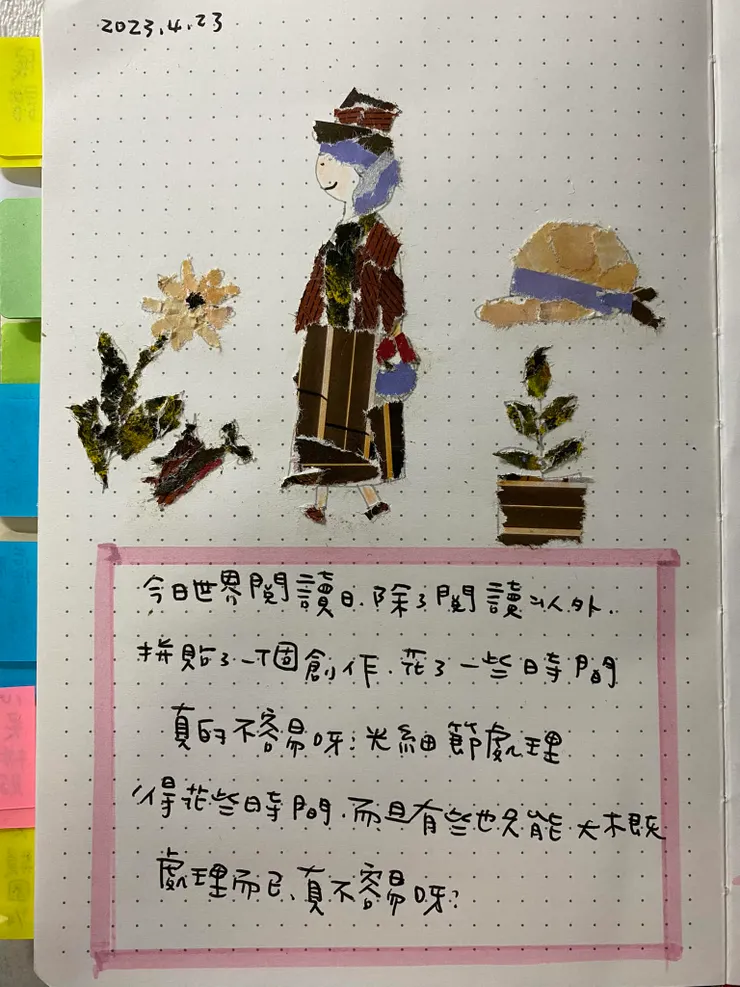 2023.4.23
今日世界閱讀日.除了閱讀以外.
拼貼了一個創作.花了一些時間
真的不容易呀!光細節處理
得花些時間.而且有些也只能大概
處理而已、真不容易呀!